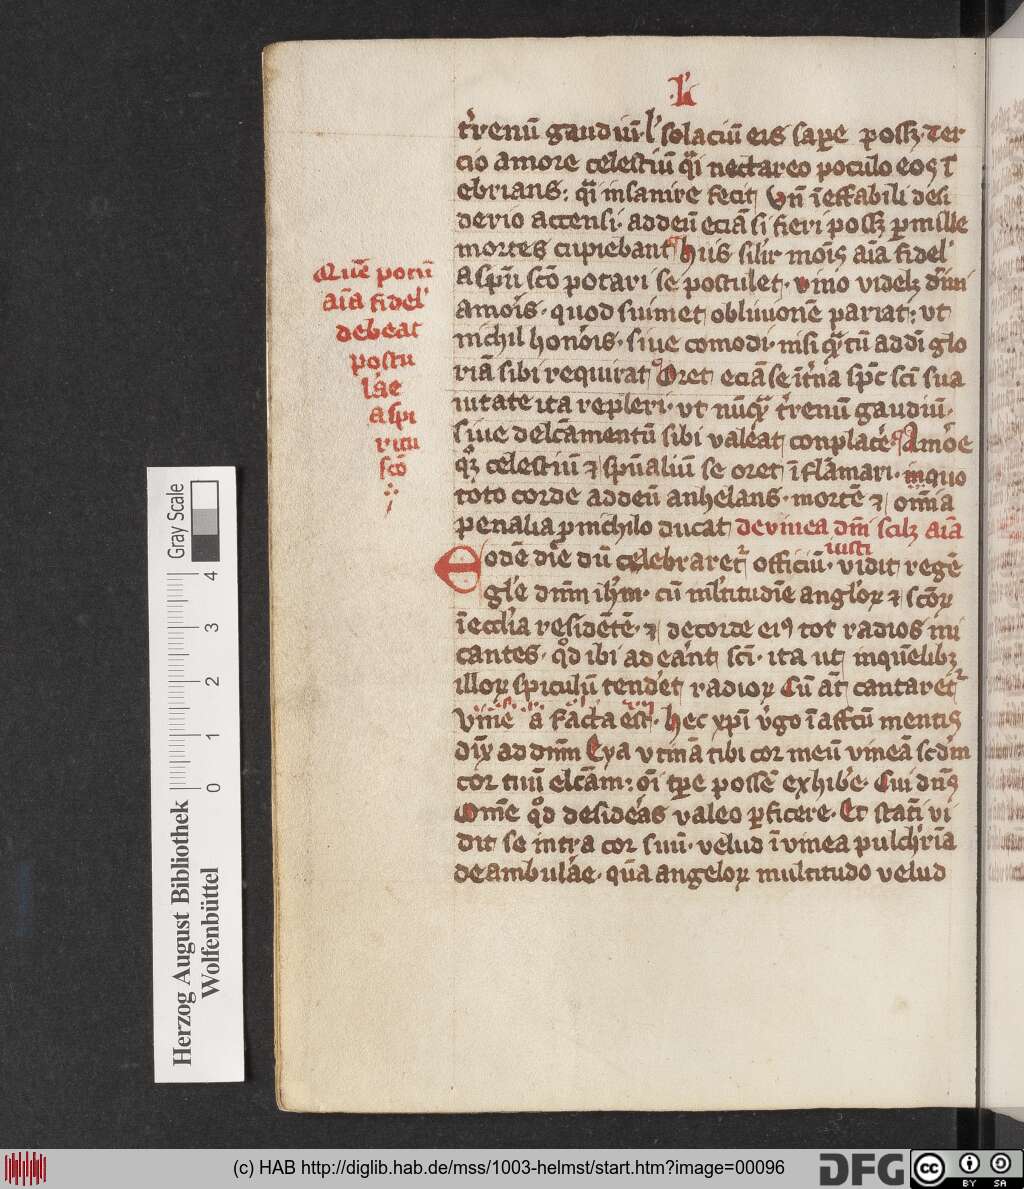 ·L·
t'renū gaudiū· l' solaciū eis sape possꝫ· Ter
cio amore celestiū q̄i nectareo poculo eos ī
ebrians: q̄i insanire fecit Vn̄ īeffabili desi
derio accensi· ad deū eciā si fieri possꝫ p mille
mortes cupiebant huiꝰ silir mois aīa fidel'
a spū scō potari se postulet· vino videlꝫ diuini
amoris· quod suimet obliuionē pariat: ut
nichil honoris· siue comodi· nisi q̄tū ad dī glo
riā sibi requirat Oret eciā se īt'na spc sci sua
uitate ita repleri· vt nūq̄ t'renū gaudiū·
siue delcāmentū sibi valeat conplace' Amore
qꝫ celestiū ⁊ spūaliū se oret īflāmari· in quo
toto corde ad deū anhelans· mortē ⁊ om̄ia
penalia p nichilo ducat de vinea dm̄ scilꝫ aīa
iusti
Eodē die dū celebraret' officiū· vidit regē
gl'e dnm ihm̄· cū ml'titudie anglor ⁊ scōr
ī ecclia residētē· ⁊ de corde eiꝰ tot radios mi
cantes· qd ibi aderant sci· ita ut in quēlibꝫ
illor spiculū tenderet radior Cū at cantaret'
Vinee a facta est· hec xpi v'go ī affcū mentis
dix ad dnm Eya vtinā tibi cor meū vineā scdm
cor tuū elcam: oi tpe possē exhibe'e· Cui dns
Ome qd desideras valeo pficere· Et stati vi
dit se intra cor suū· velud ī vinea pulch'ria
deambulare· quā angelor multitudo velud
Quē potū
aīa fidel'
debeat
postu
lare
a spi
ritu
scō
(c) HAB http://diglib.hab.de/mss/1003-helmst/start.htm?image=00096
DFG
cc BY SA
Herzog August Bibliothek
Wolfenbüttel
0 1 2 3 4
Gray Scale